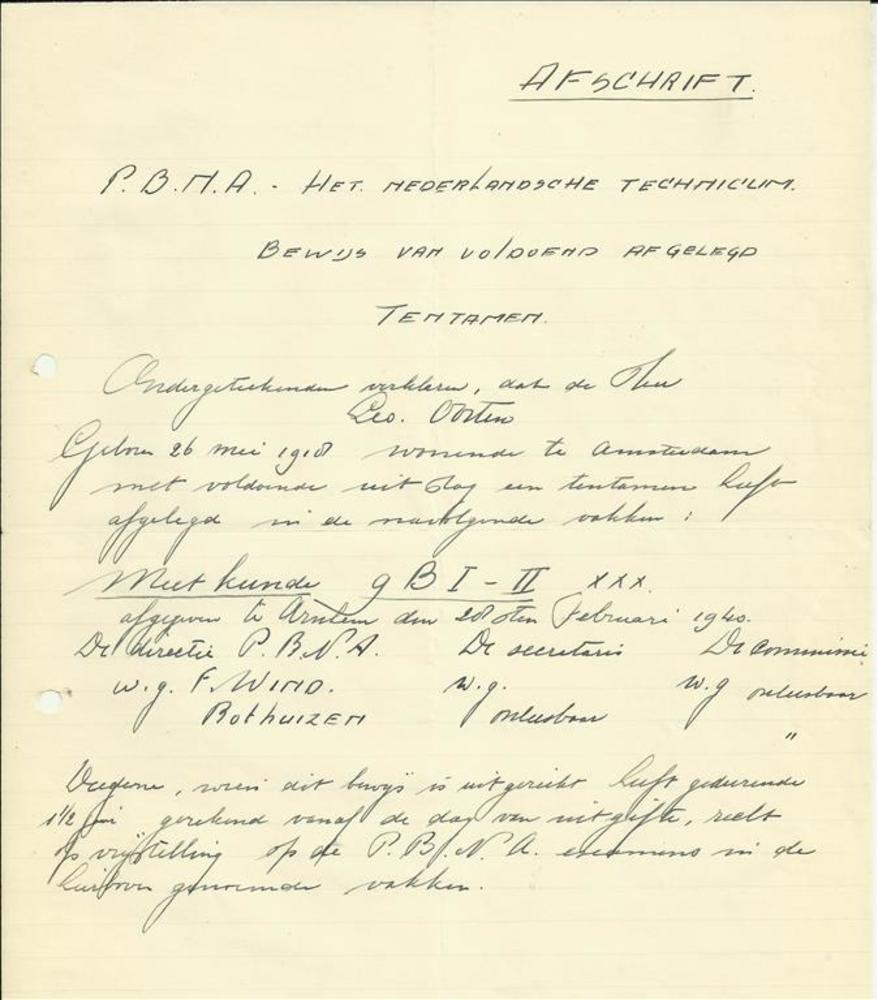 AFSCHRIFT.
P.B.N.A. - HET. NEDERLANDSCHE TECHNICUM.
BEWIJS VAN VOLDOEND AFGELEGD
TENTAMEN.
Ondergeteekenden verklaren, dat de Heer
Leo. Oosten
Geboren 26 mei 1918 wonende te Amsterdam
met voldoende uitslag een tentamen heeft
afgelegd in de navolgende vakken:
Meetkunde g B I - II xxx.
afgegeven te Arnhem den 28sten Februari 1940.
De directie P.B.N.A. De secretaris De commissie
w.g. F. WIND. w.g. w.g onleesbaar
Rothuizen onleesbaar "
Diegene, wien dit bewijs is uitgereikt heeft gedurende
1½ jaar gerekend vanaf de dag van uitgifte, recht
op vrijstelling op de P.B.N.A. examens in de
hierboven genoemde vakken.